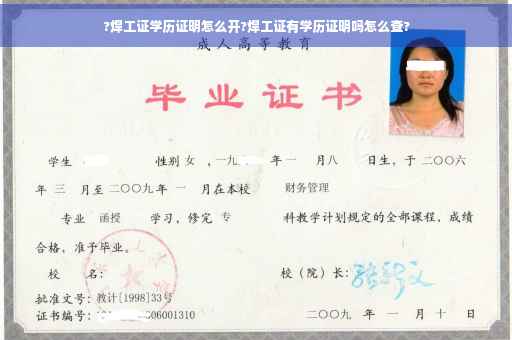 ?焊工证学历证明怎么开?焊工证有学历证明吗怎么查?
成人高等教育
毕业证书
学生 性别 女 ,一九 年 一 月八 日生,于 二〇〇六
年 三 月至 二〇〇九 年 一 月在本校 财务管理
专业 函授 学习,修完 专 科教学计划规定的全部课程,成绩
合格,准予毕业。
校 名: 校(院)长:
批准文号:教计[1998]33号
证书编号: 06001310 二〇〇九 年 一 月 十 日